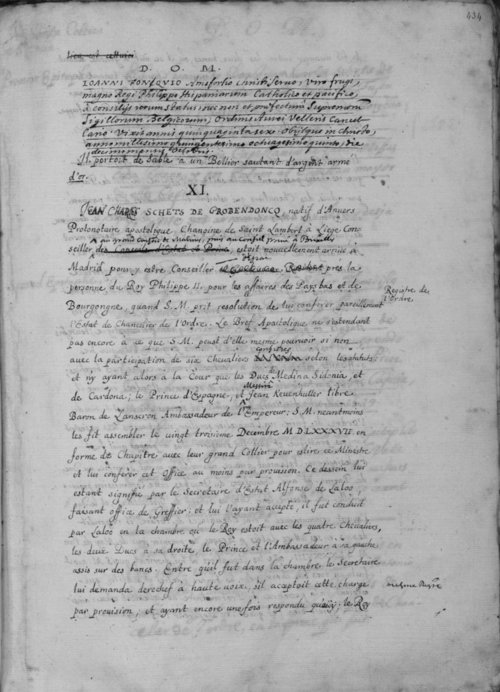 434
D. O. M.
IOANNI FONQVIO Amisfortio Christi Servo, viro frugi,
magno Regi Philippo Hispaniarum Catholico et pacifico,
a consilijs rerum status, nec non et prefectura supremorum
sigillorum Belgicorum, Ordinis Aurei Velleris Cancel-
lario. Vixit annis quinquaginta sex. Obijtque in Christo,
anno millesimo quingentesimo octuagesimo quinto, die
decimo
Il portoit de sable à un Bellier sautant d'argent armé
d'or.
XI.
JEAN CHARLES SCHETS DE GROBENDONCQ, natif d'Anvers
Protonotaire apostolique Chanoine de Saint Lambert à Liege Con-
au grand Conseil de Malines, puis au Conseil privé à Bruxelles
seiller des estoit nouvellement arrivé à
Madrid pour y estre Conseiller pres la
personne du Roy Philippe II. pour les affaires des Paysbas et de
Bourgongne, quand S. M. prit resolution de luy conferer pareillement
Registre de
l'Ordre.
l'Estat de Chancelier de l'Ordre. Le Bref Apostolique ne s'etendant
pas encore à ce que S. M. peust d'elle mesme pourvoir si non
avec la participation de six Chevaliers confreres selon les statuts,
et n'y ayant alors à la Cour que les Ducs de Medina Sidonia, et
de Cardona, le Prince d'Espagne, et Messire Jean Kevenhuller libre
Baron de Lanscron Ambassadeur de l'Empereur; S. M. neantmoins
les fit assembler le vingt troisieme Decembre M D LXXXVII en
forme de Chapitre avec leur grand Collier pour eslire ce Ministre
et luy conferer cet Office au moins par provision. Ce dessein luy
estant signifié par le Secretaire d'Estat Alfonse de Laloo,
faisant office de Greffier; et luy l'ayant accepté, il fut conduit
par Laloo en la chambre où le Roy estoit avec les quatre Chevaliers,
les deux Ducs à sa droite, le Prince et l'Ambassadeur à sa gauche
assis sur des bancs. Entre qu'il fut dans la chambre le Secretaire
luy demanda derechef à haute voix, s'il acceptoit cette charge
mesme Registre
par provision; et ayant encore une fois respondu qu'ouy; le Roy